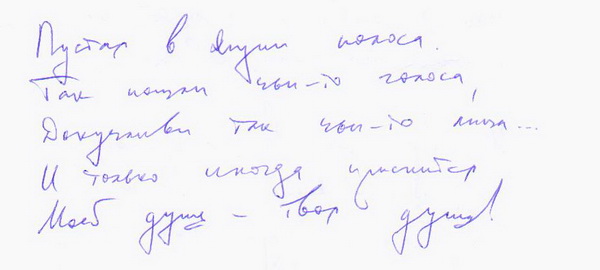 Пустая в душе полоса.
Так пошлы чьи-то голоса,
Докучливы так чьи-то лица...
И только иногда приснится
Моей душе – твоя душа!